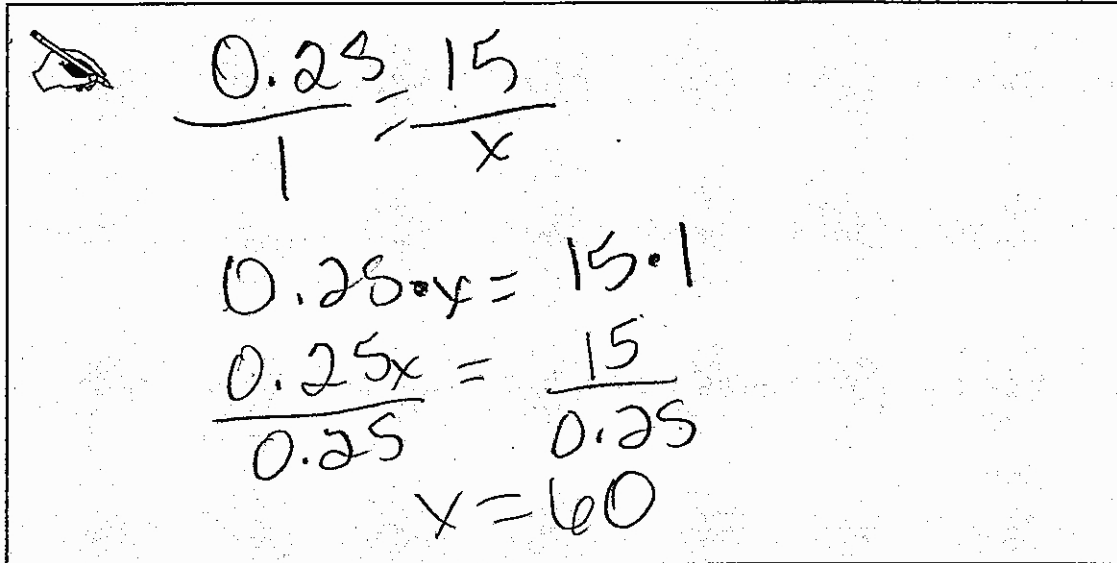 0.25/1 = 15/x
0.25•x = 15•1
0.25x/0.25 = 15/0.25
x = 60